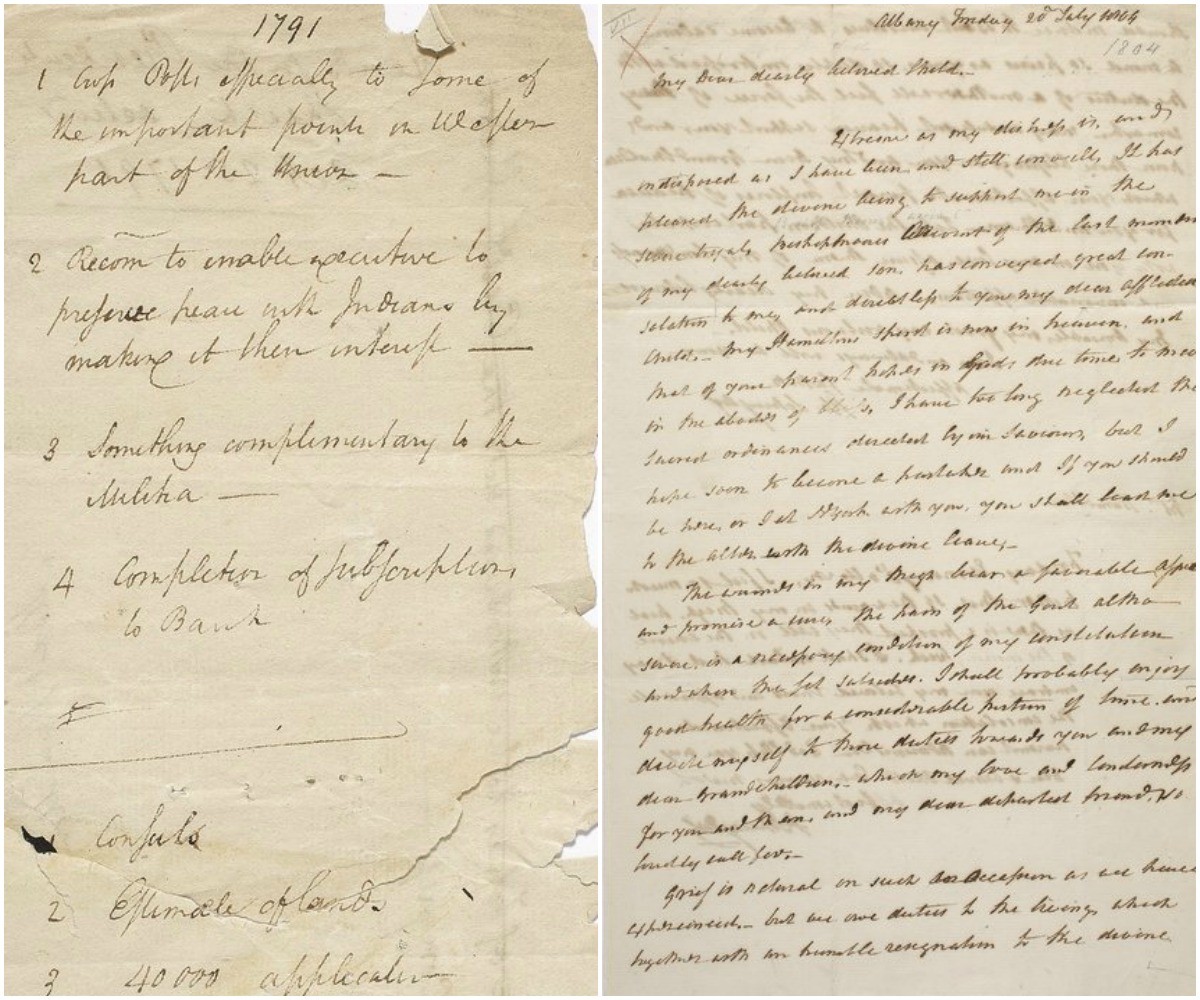 1791
1 Cross Posts especially to some of
the important points in Western
part of the Union —
2 Recom to enable executive to
preserve peace with Indians by
making it their interest —
3 Something complimentary to the
Militia —
4 Completion of subscriptions
to Bank
1 Consuls
2 Estimate of lands
3 40 000 application
Albany Friday 20 July 1804
1804
My Dear dearly beloved Child.
Extreme as my distress is, and
indisposed as I have been and still unwell, It has
pleased the divine being to support me in the
severe tryals, Bishop Moores account of the last moments
of my dearly beloved son, has conveyed great con-
solation to me, and doubtless to you my dear afflicted
Child. My Hamiltons spirit is now in heaven, and
that of your parent hopes in Gods due time, to meet
in the abodes of bliss, I have too long neglected the
sacred ordinances directed by our Saviour, but I
hope soon to become a partaker and If you should
be here, or I at NYork with you, you shall lead me
to the alter with the divine leave,
The wounds in my thigh bear a favorable aspect
and promise a cure, the pain of the Gout altho
severe, is a necessary condition of my constitution
and when the fit subsides. I shall probably enjoy
good health for a considerable portion of time, and
devote myself to those duties towards you and my
dear Grandchildren, which my love and tenderness
for you and them, and my dear departed friend, so
loudly call for,
Grief is natural on such an occasion as we have
experienced, but we owe duties to the living, which
together with an humble resignation to the divine